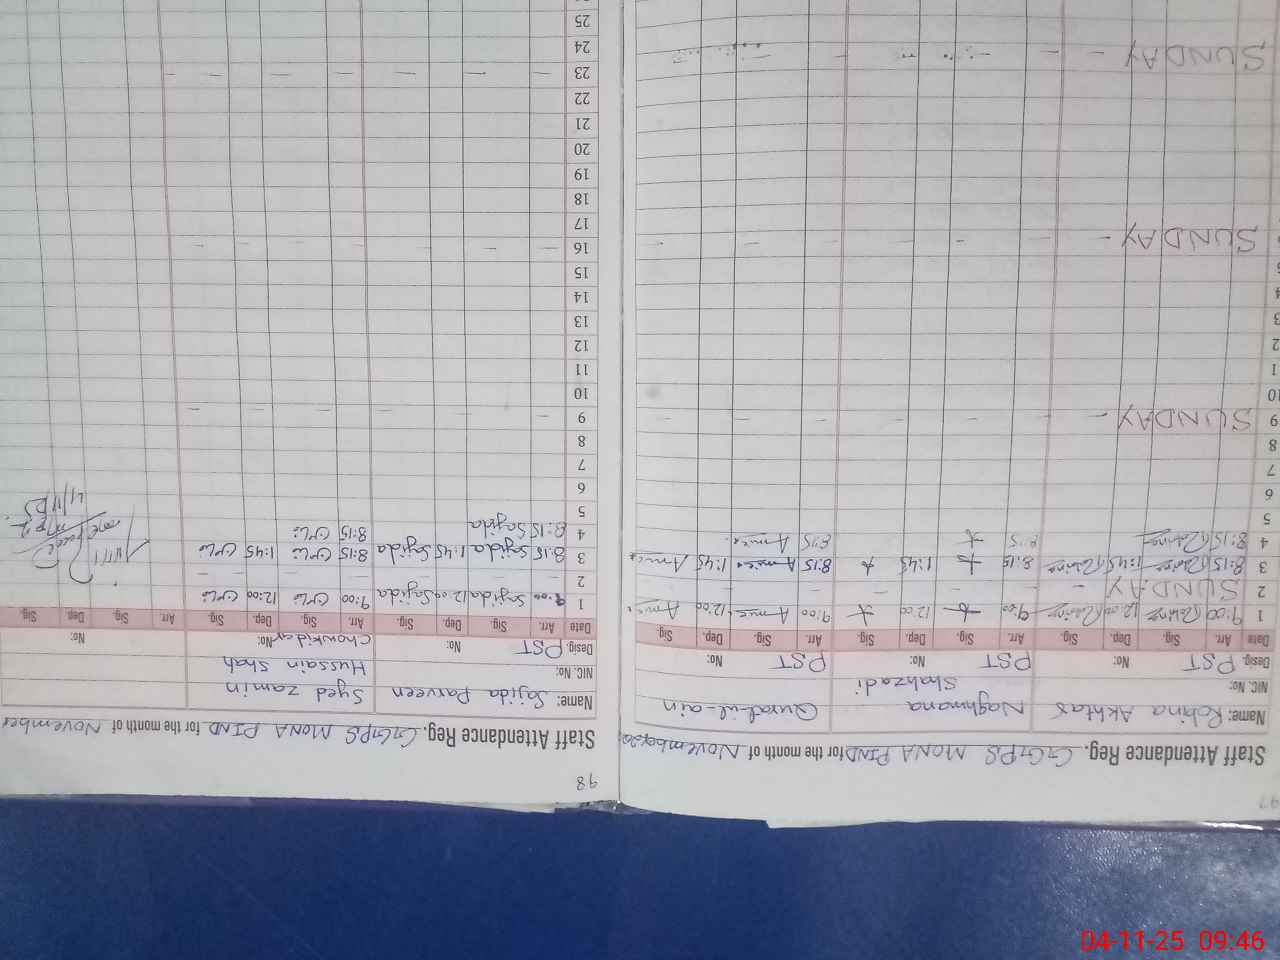 97
Staff Attendance Reg. GGPS MONA PIND for the month of November
Name: Robina Akhtar Naghmana Shahzadi Qurat-ul-ain
NIC. No:
Desig. PST No: PST No: PST No:
Date Arr. Sig. Dep. Sig. Arr. Sig. Dep. Sig. Arr. Sig. Dep. Sig.
1 9:00 12:00 9:00 12:00 9:00 12:00
2 SUNDAY – – – – – –
3 8:15 1:45 8:15 1:45 8:15 1:45
4 8:15 8:15 8:15
5
6
7
8
9 SUNDAY – – – – – –
10
SUNDAY – – – – – –
SUNDAY – – – – – –
98
Staff Attendance Reg. GGPS MONA PIND for the month of November
Name: Sajida Parveen Syed zamin Hussain Shah
NIC. No:
Desig. PST No: Chowkidar No: No:
Date Arr. Sig. Dep. Sig. Arr. Sig. Dep. Sig. Arr. Sig. Dep. Sig.
1 9:00 Sajida 12:00 Sajida 9:00 12:00
2 – – – – – – – –
3 8:15 Sajida 1:45 Sajida 8:15 1:45
4 8:15 Sajida 8:15
5
6
7
8
9 – – – – – – – –
10
11
12
13
14
15
16 – – – – – – – –
17
18
19
20
21
22
23 – – – – – – – –
24
25
04-11-25 09:46